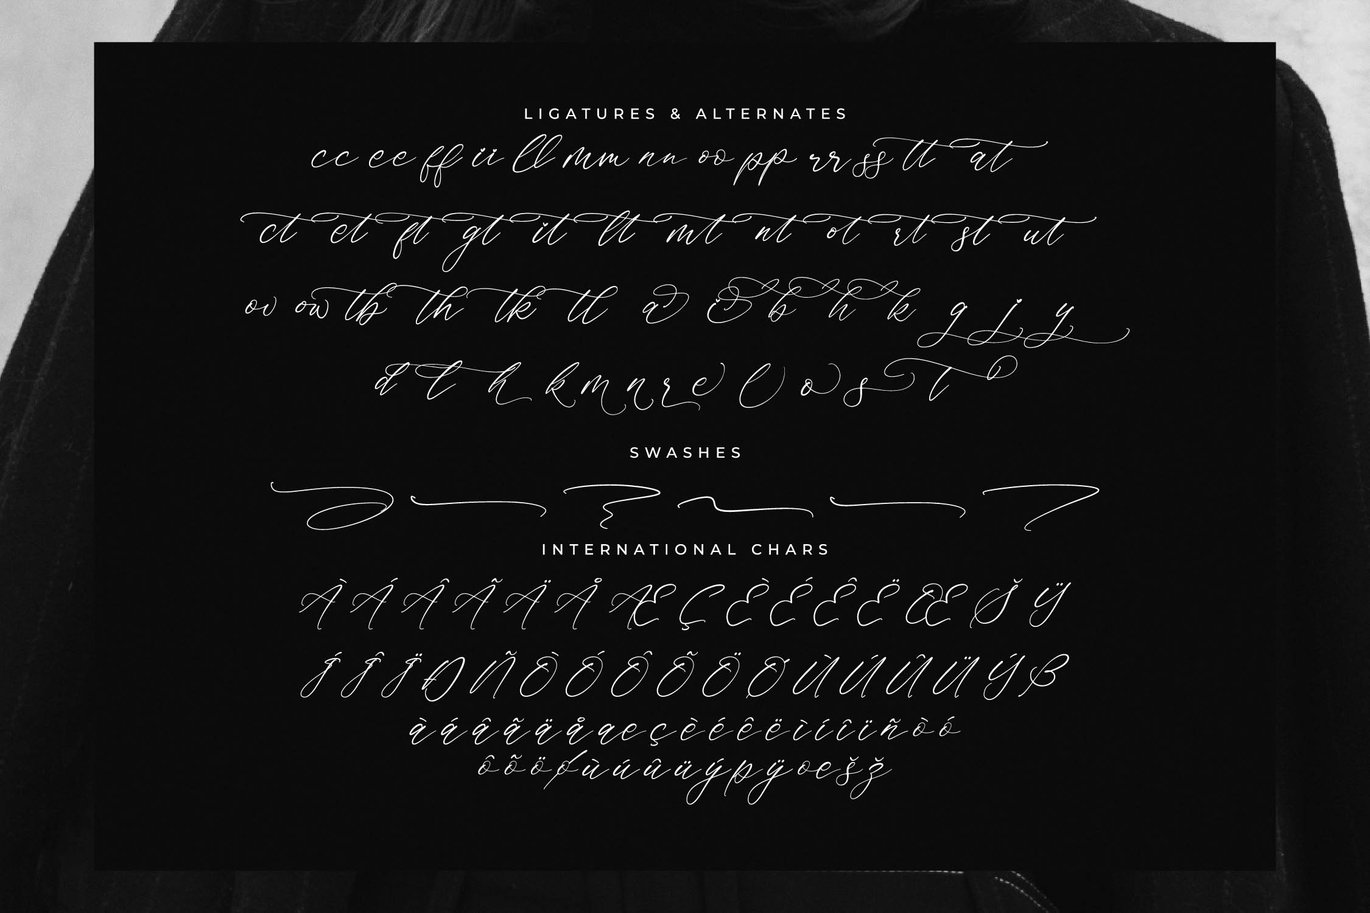 LIGATURES & ALTERNATES
cc ee ff ii ll mm nn oo pp rr ss tt at
ct et ft gt it lt mt nt ot rt st ut
ov ow tb th tk tl a b h k g j y
d t h k m n r e l o s t
SWASHES
INTERNATIONAL CHARS
À Á Â Ã Ä Å Æ Ç È É Ê Ë Œ Š Ÿ
Í Î Ï Ð Ñ Ò Ó Ô Õ Ö Ø Ù Ú Û Ü Ý ß
à á â ã ä å æ ç è é ê ë ì í î ï ñ ò ó
ô õ ö ø ù ú û ü ý þ ÿ œ š ž